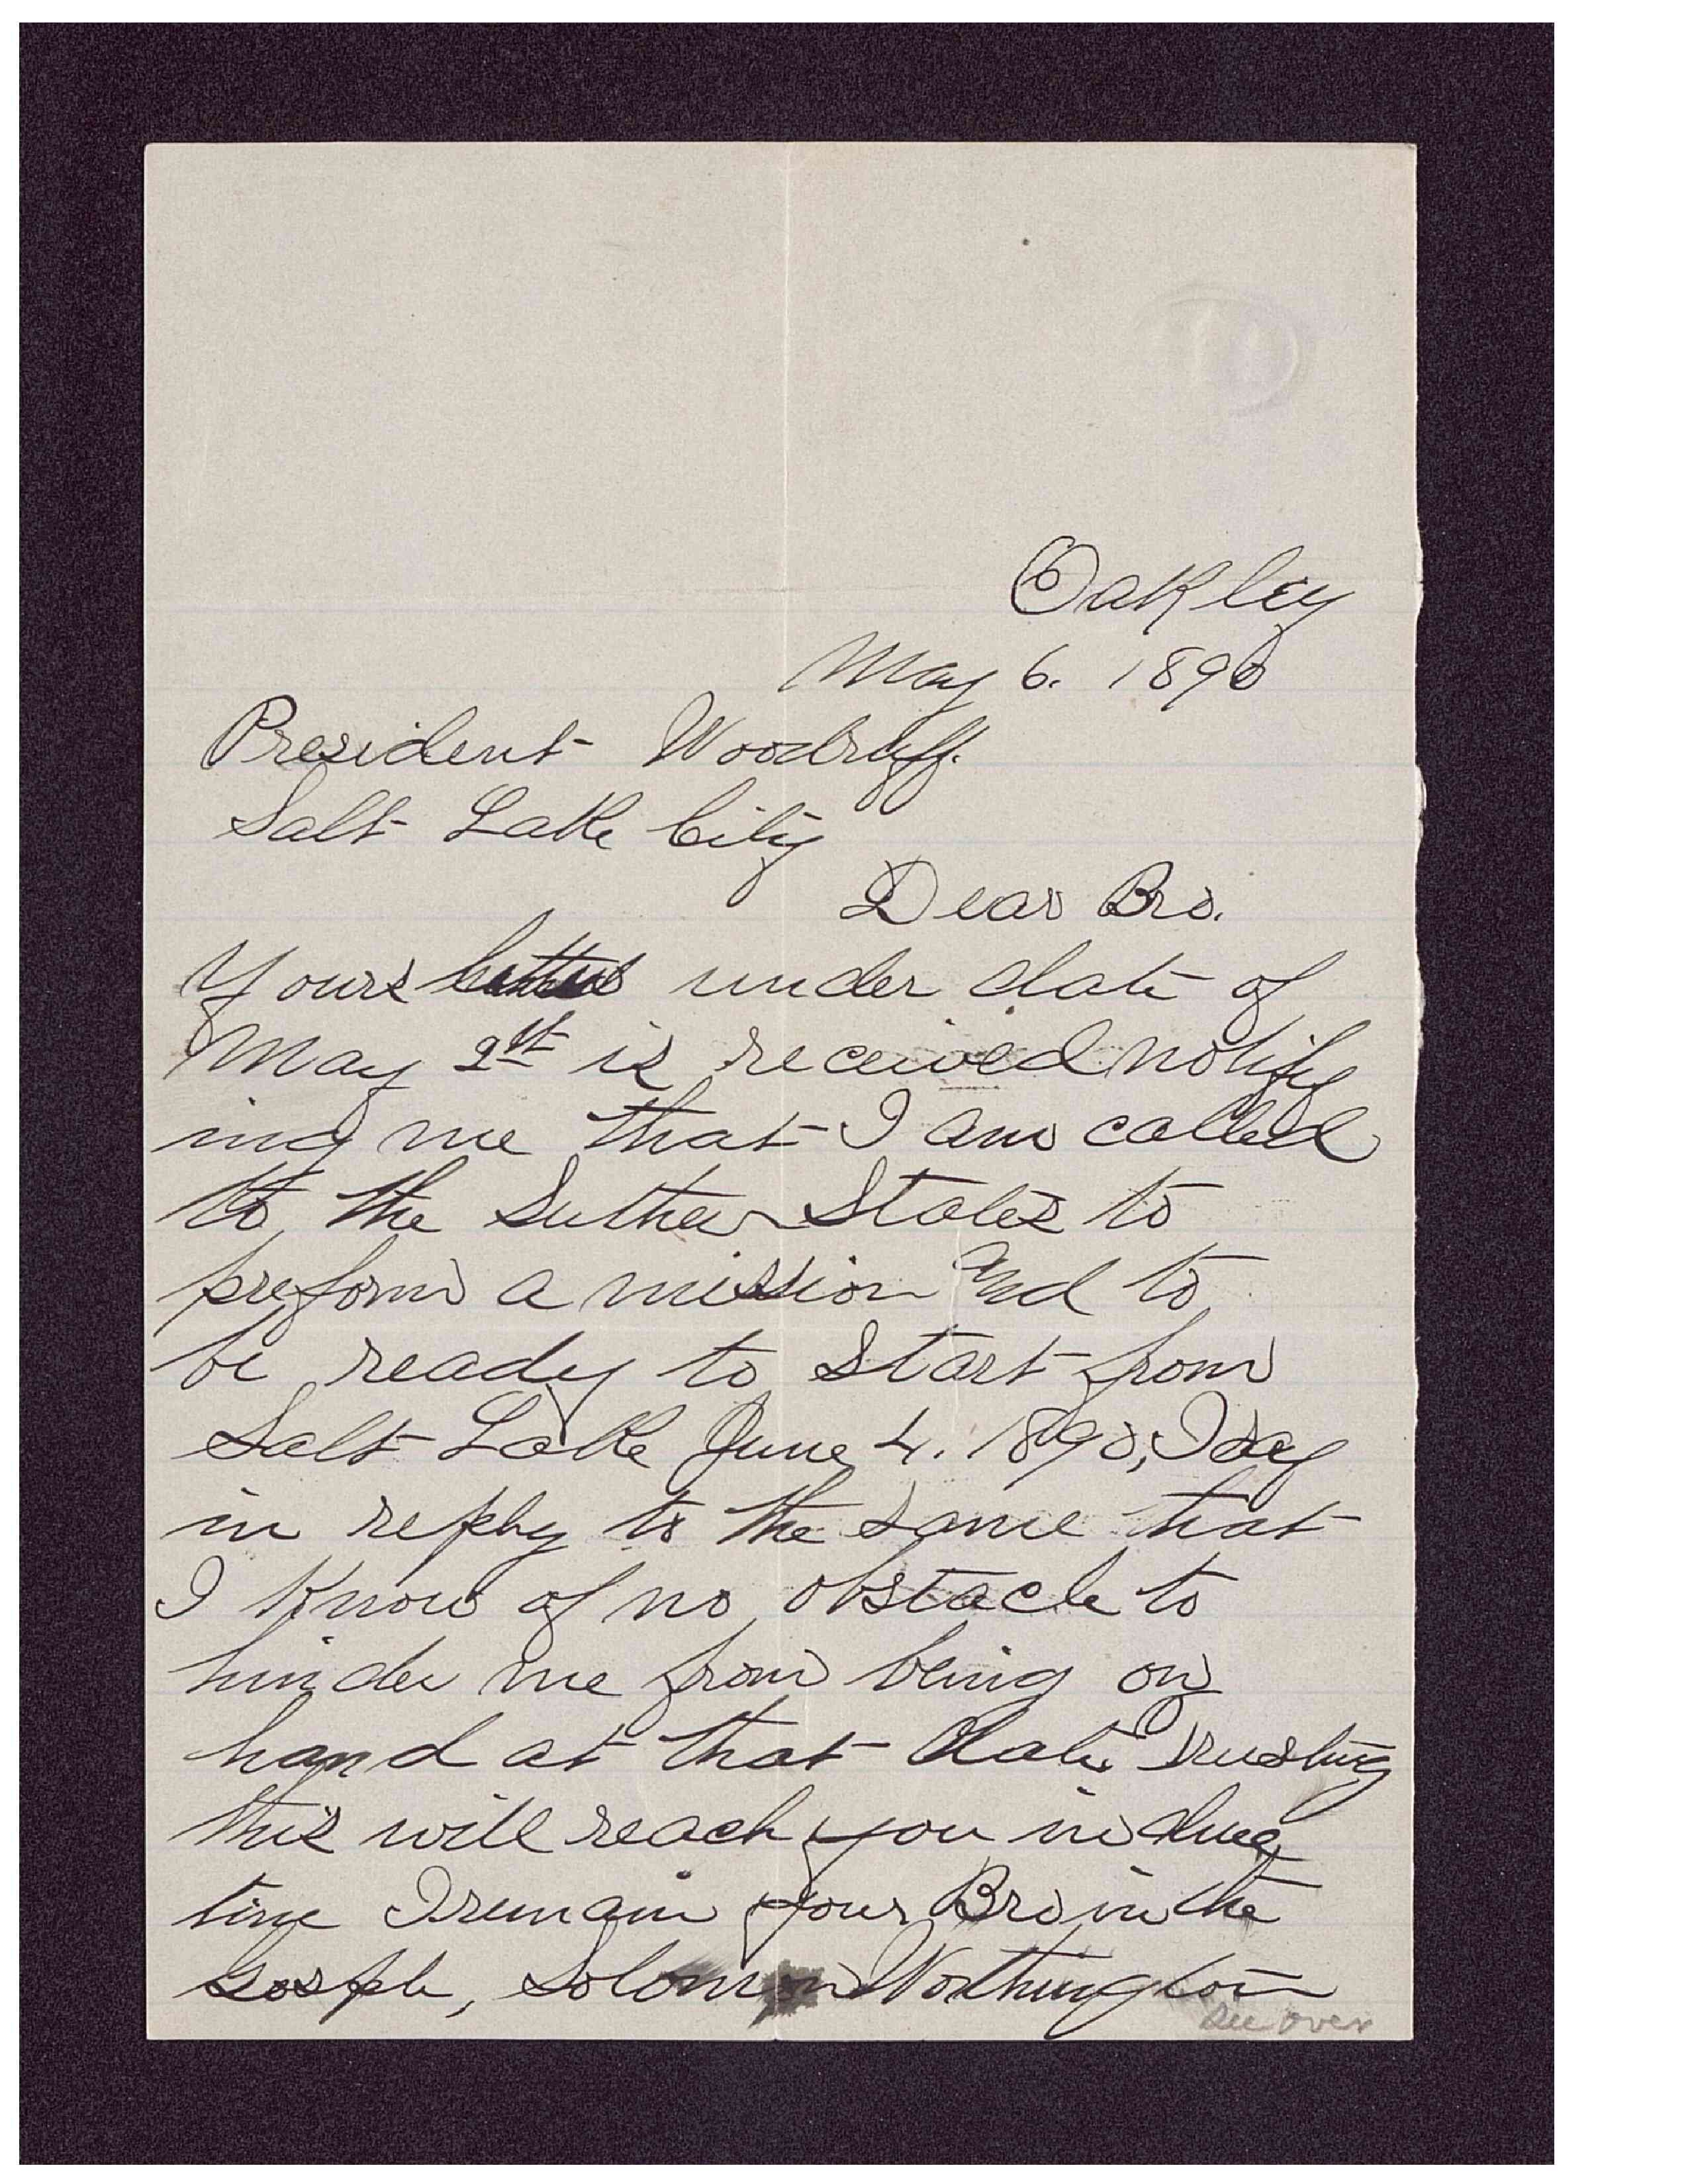 Oakley
May 6. 1890
President Woodruff.
Salt Lake City
Dear Bro.
Yours under date of
May 2st is received notify
ing me that I am called
to the Suthern States to
preform a mission and to
be ready to start from
Salt Lake June 4. 1890, I say
in reply to the same that
I know of no obstacle to
hinder me from being on
hand at that date trusting
this will reach you in due
time I remain your Bro in the
Gosple, Solomon Worthington
See over